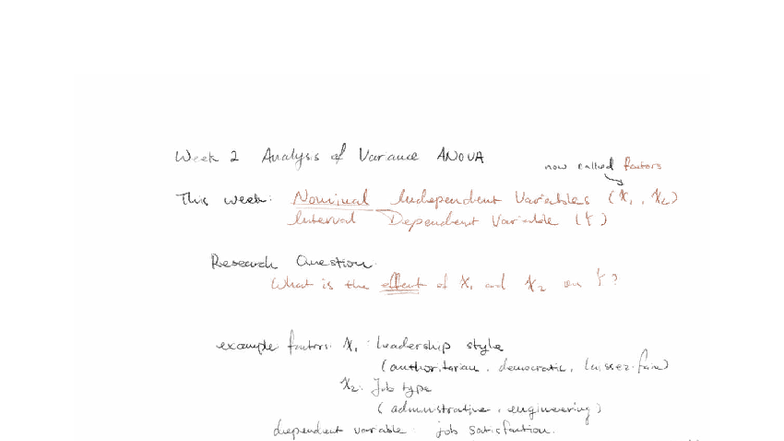 Week 2 Analysis of Variance ANOVA
now called factors
This week: Nominal Independent Variables (X₁, X₂)
Interval Dependent Variable (Y)
Research Question:
What is the effect of X₁ and X₂ on Y?
example factors: X₁: Leadership style
(authoritarian, democratic, laissez-faire)
X₂: Job type
(administrative, engineering)
dependent variable: job satisfaction.